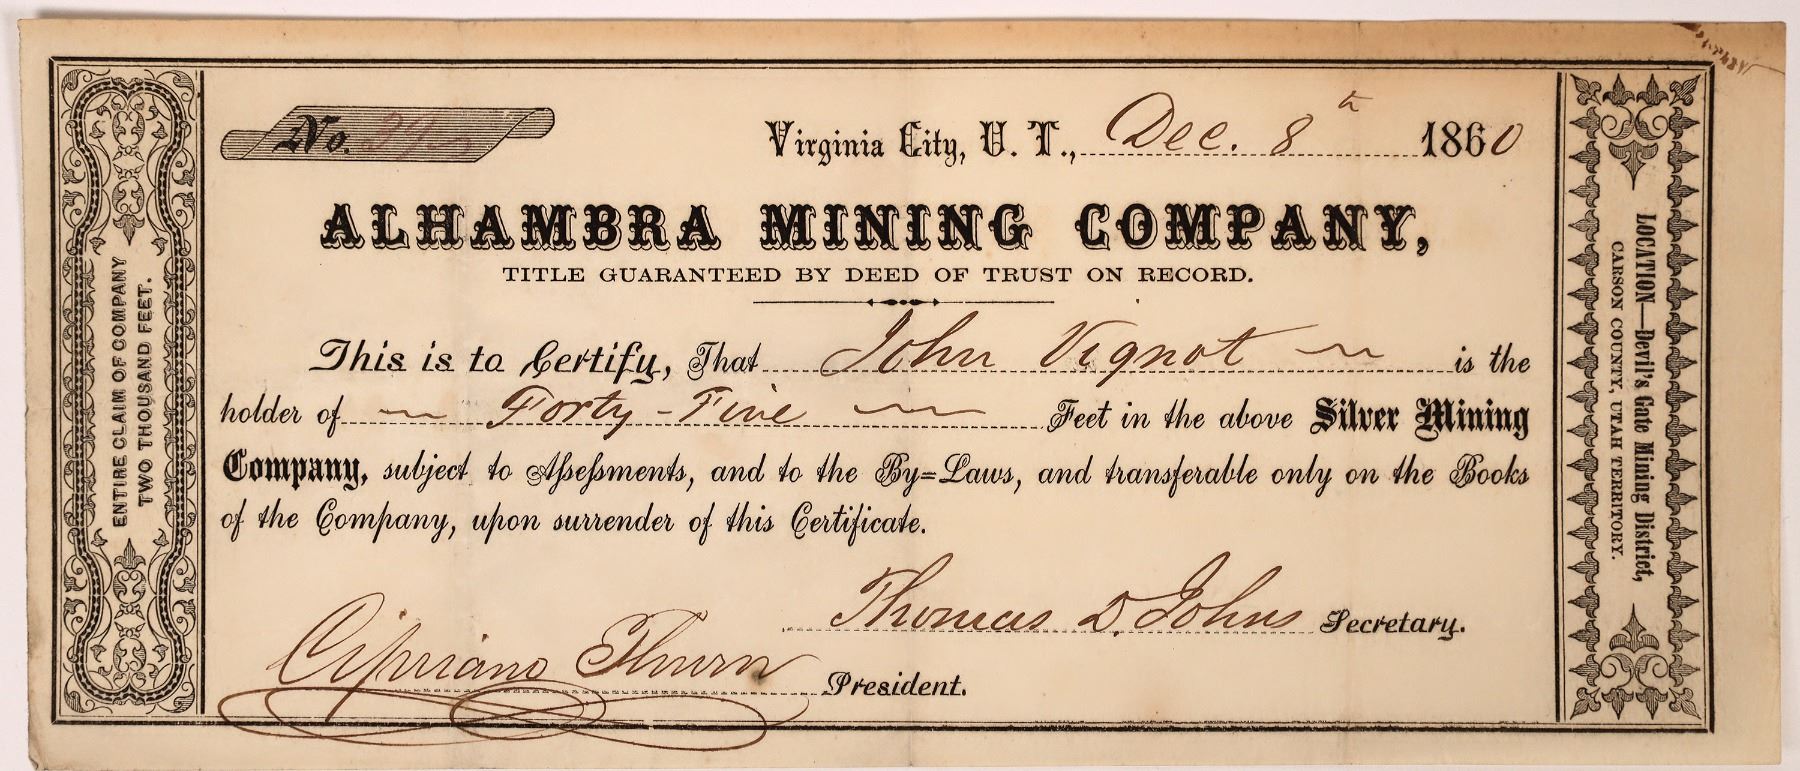 No.
Virginia City, U. T., Dec. 8th 1860
ALHAMBRA MINING COMPANY,
TITLE GUARANTEED BY DEED OF TRUST ON RECORD.
This is to Certify, That John Vignot is the
holder of Forty-Five Feet in the above Silver Mining
Company, subject to Assessments, and to the By=Laws, and transferable only on the Books
of the Company, upon surrender of this Certificate.
Thomas D. Johns Secretary.
Cipriano Thurn President.
ENTIRE CLAIM OF COMPANY
TWO THOUSAND FEET.
LOCATION—Devil's Gate Mining District,
CARSON COUNTY, UTAH TERRITORY.